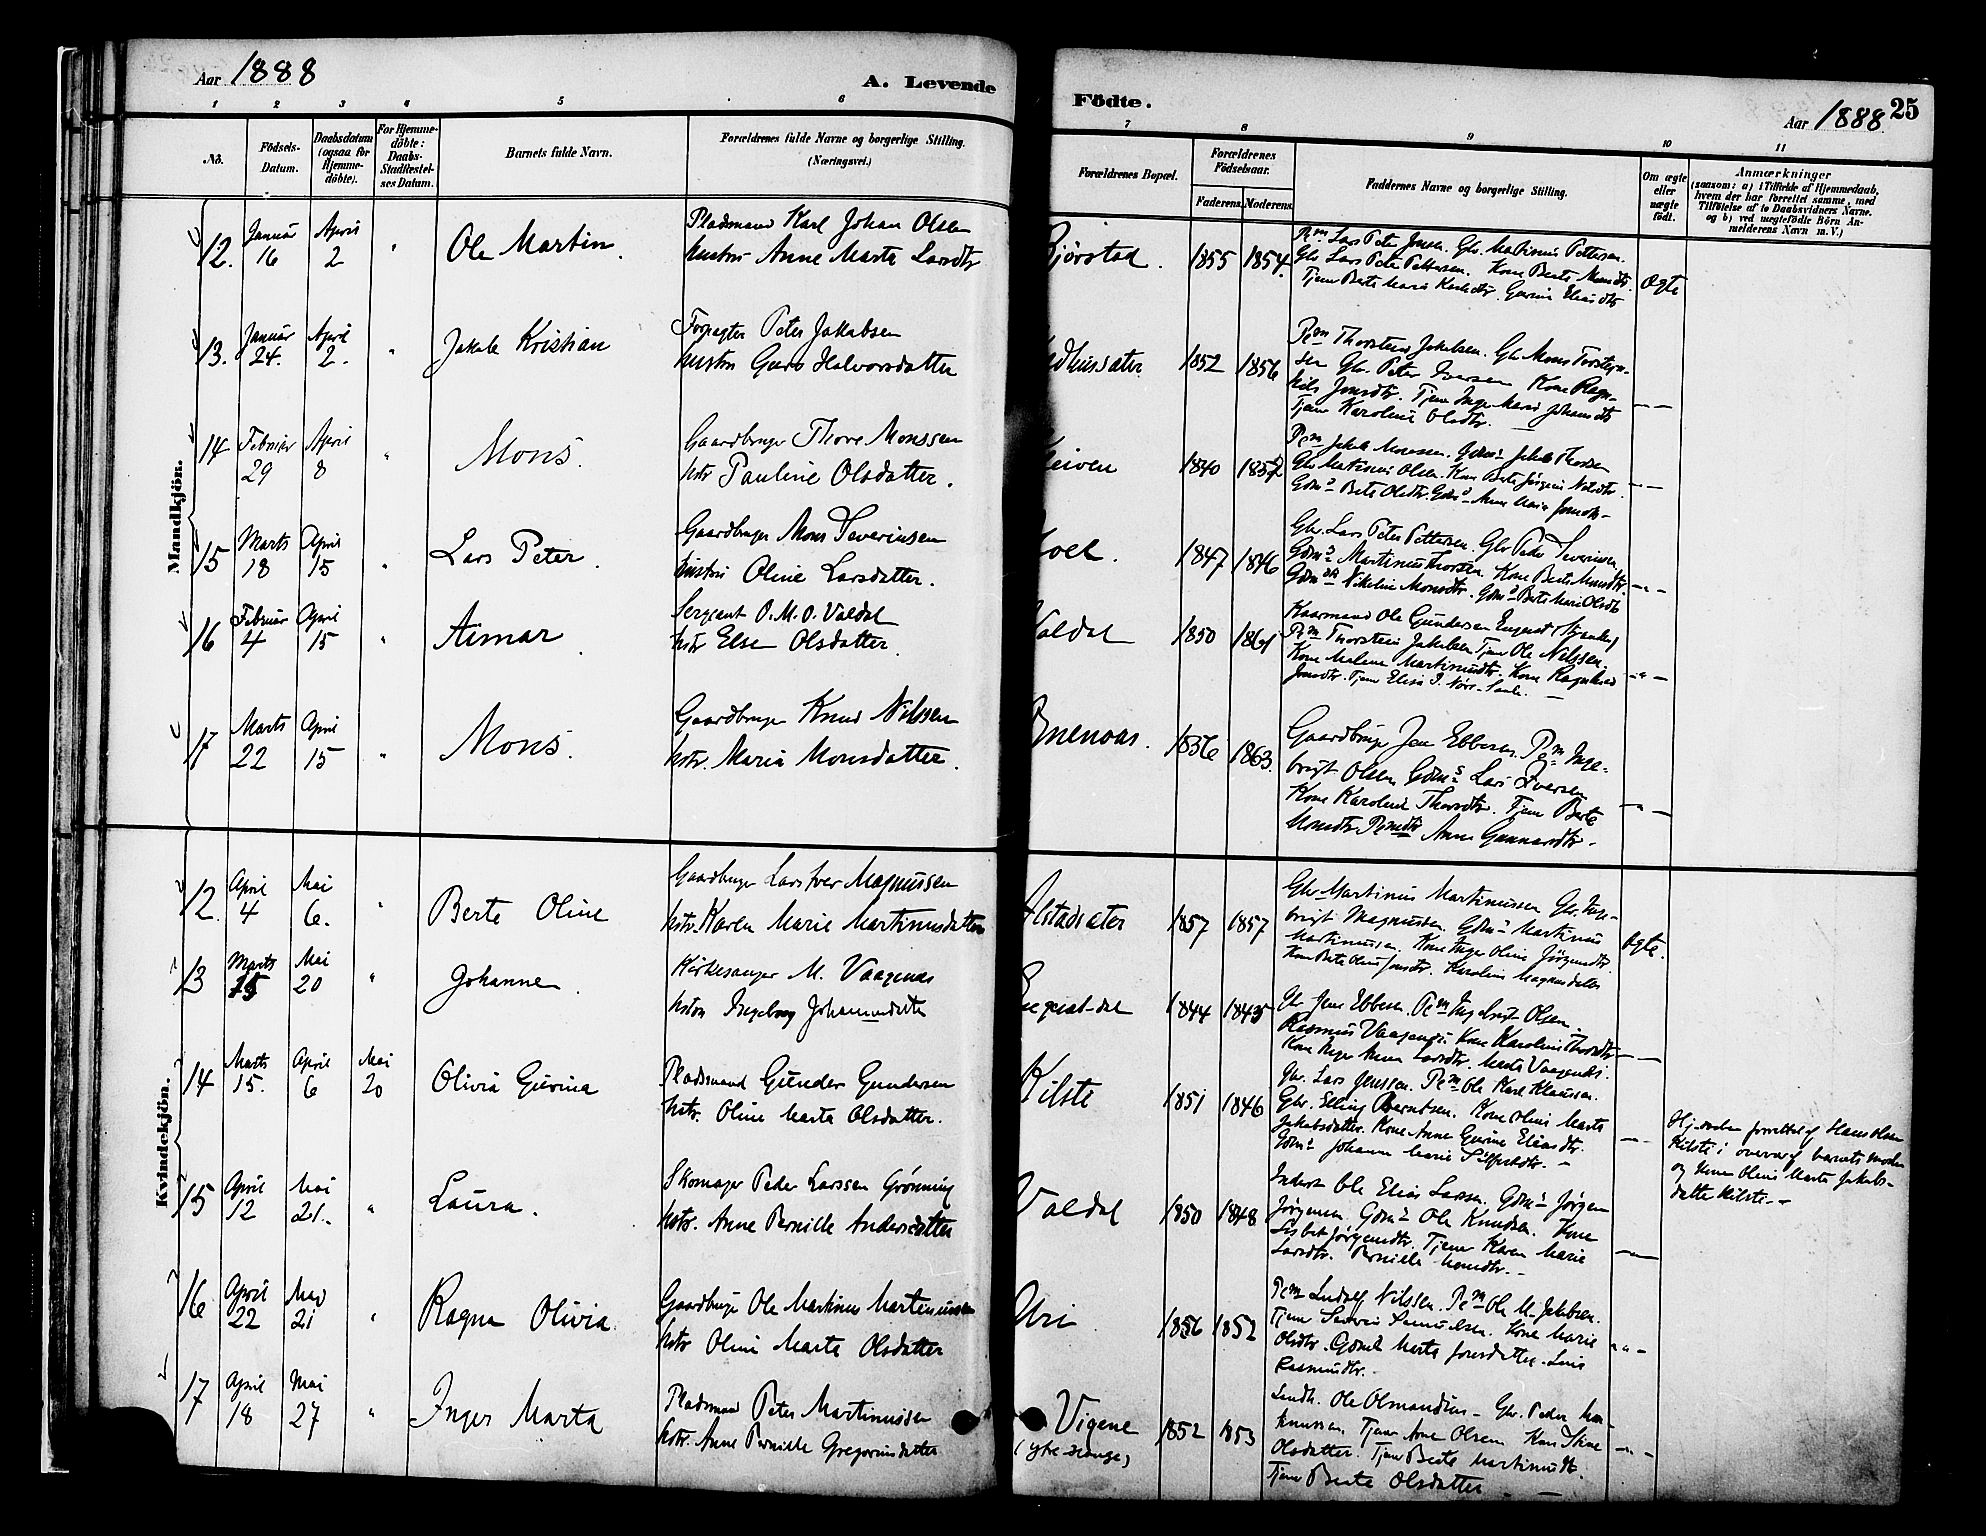 Aar 1888
A. Levende
1 2 3 4 5 6
No.
Födsels-
Datum.
Daabsdatum
(ogsaa for
Hjemme-
döbte).
For Hjemme-
döbte:
Daabs-
Stadfæstel-
ses Datum.
Barnets fulde Navn.
Forældrenes fulde Navne og borgerlige Stilling.
(Næringsvei.)
Födte.
Aar 1888 25
7 8 9 10 11
Forældrenes Bopæl.
Forældrenes
Födselsaar.
Faderens. Moderens.
Faddernes Navne og borgerlige Stilling.
Om ægte
eller
uægte
födt.
Anmærkninger
(saasom: a) i Tilfælde af Hjemmedaab,
hvem der har forrettet samme, med
Tilföielse af to Daabsvidners Navne.
og b) ved uegtefödte Börn An-
melderens Navn m. V.)
Mandkjön.
12. Januar 16 April 2 " Ole Martin.
Pladsmand Karl Johan Olsen
hustru Anne Marta Larsdtr
Bjørstad. 1855 1854.
Pm Lars Peter Jensen. Gbr. Martinus Pettersen.
Gbr Lars Peter Pettersen. Kone Berte Monsdtr.
Tjener Berte Maria
ægte
13. Januar 24. April 2. " Jakob Kristian
Forpagter Peter Jakobsen
hustru Guro Halvorsdatter
1852 1856
Pm Thorstein Jakobsen. Gbr Mons Torstein-
sen Gbr. Peter Iversen Kone Ragn-
hild Jonsdtr. Tjener Inge Marie Johansdtr
Tjener Karoline Olsdtr.
14 Februar 29 April 8 " Mons.
Gaardbruger Thore Monssen
hstr Pauline Olsdatter.
1840 1852
Pm Jakob Monssen. Gdms Jakob Thorsen
Gbr Martinus Olsen. Kone Berte Jørgine Nilsdtr.
Gdmd Berte Olsdtr. Gdmd Anne Marie Jonsdtr
15 Marts 18 April 15 " Lars Peter.
Gaardbruger Mons Severinsen
hustru Oline Larsdatter.
1847 1846
Gbr. Lars Peter Pettersen. Gbr Peder Severinsen
Gdms Martinus Thorsen. Kone Berte Monsdtr.
Gdmd Nikoline Monsdtr. Gdmd Berte Marie Olsdtr
16 Februar 4 April 15 " Aimar.
Sergeant O. M. O. Valdal
hstr Else Olsdatter.
Valdal 1850 1861
Kaarmand Ole Gundersen
Pm Thorstein Jakobsen Tjener Ole Nilssen.
Kone Malene Martinusdtr. Kone Ragnhild
Jonsdtr. Tjener Elisa
17 Marts 22 April 15 " Mons.
Gaardbruger Knud Nilssen
hstr. Maria Monsdatter.
1836 1863.
Gaardbruger Jon Ebbesen. Pm Inge-
brigt Olsen Gdms Lars Iversen
Kone Karoline Thorsdtr. Tjener Berte
Monsdtr Anne Gunnarsdtr.
Kvindekjön.
12. April 4 Mai 6. " Berte Oline
Gaardbruger Lars Iver Magnussen
hstr. Karen Marie Martinusdatter
Alstadsæter 1857 1857
Gbr Martinus Martinussen Gbr. Inge-
brigt Magnussen. Gdms Martinus
Martinussen. Kone Inger Oline Jørgensdtr.
Kone Berte Oline Jonsdtr. Karoline Magnusdatter
ægte.
13 Marts 25 Mai 20 " Johanne.
Kirkesanger M. Vaagenes
hstru Ingeborg Johannesdatter
1844 1843
Gbr Jon Ebbesen. Pm Ingebrigt Olsen
Rasmus Vaagenes. Kone Karoline Thorsdtr
Kone Inger Anna Larsdtr. Marta Vaagenes.
14 Marts 15. April 6 Mai 20 Olivia Gurina
Pladsmand Gunder Gundersen
hstr. Oline Marta Olsdatter.
Kilsti 1851 1846
Gbr. Lars Jenssen. Pm Ole Karl Klaussen.
Gbr. Elling Berntsen. Kone Oline Marta
Jakobsdatter. Kone Anne Gurine Eliasdtr.
Gdmd Johanne Marie
Hj.døben forrettet af Hans Olsen
Kilsti i overvær af barnets moder
og kone Oline Marta Jakobs-
datter Kilsti.
15 April 12 Mai 21. " Laura.
Skomager Peder Larssen Grønning
hstr. Anne Pernille Andersdatter
Valdal 1850 1848
Inderst Ole Elias Larsen. Gdms Jørgen
Jørgensen. Gdms Ole Knudsen. Kone
Lisbet Jørgensdtr. Tjener Karen Marie
Larsdtr. Pernille Monsdtr.
16 April 22 Mai 21 " Ragna Olivia.
Gaardbruger Ole Martinus Martinussen
hstr Oline Marta Olsdatter
Uri 1856 1852
Pm Ludolf Nilssen. Pm Ole M. Jakobsen.
Tjener Kone Marie
Olsdtr. Marte Jonsdatter.
Rasmusdtr.
17 April 18 Mai 27 " Inger Marta
Pladsmand Peter Martinussen
hstr. Anne Pernille Gregoriusdatter
Vigene 1852 1853
Ole Gbr. Peder
Tjener Arne Olsen Kone
Olsdatter. Tjener Berte Martinusdtr.
Tjener Berte Olsdatter